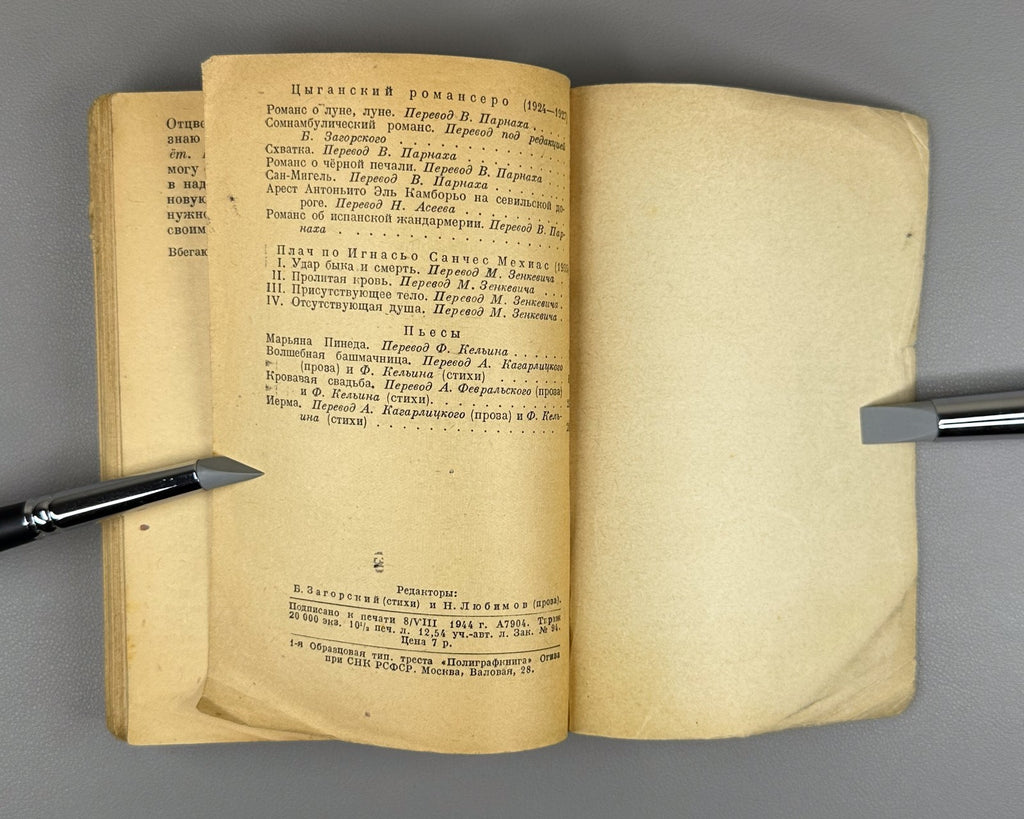 Отцве
знаю
ёт.
могу
в над
новую
нужно
своим
Вбегак
Цыганский романсеро (1924—1927
Романс о луне, луне. Перевод В. Парнаха . . . .
Сомнамбулический романс. Перевод под редакцией
Б. Загорского . . . . . . . . . . . .
Схватка. Перевод В. Парнаха . . . . . . . .
Романс о чёрной печали. Перевод В. Парнаха . . .
Сан-Мигель. Перевод В. Парнаха . . . . . . .
Арест Антоньито Эль Камборьо на севильской до-
роге. Перевод Н. Асеева . . . . . . . .
Романс об испанской жандармерии. Перевод В. Пар-
наха . . . . . . . . . . . . . . . .
Плач по Игнасьо Санчес Мехиас
I. Удар быка и смерть. Перевод М. Зенкевича .
II. Пролитая кровь. Перевод М. Зенкевича . . .
III. Присутствующее тело. Перевод М. Зенкевича .
IV. Отсутствующая душа. Перевод М. Зенкевича .
Пьесы
Марьяна Пинеда. Перевод Ф. Кельина . . . . . .
Волшебная башмачница. Перевод А. Кагарлицкого
(проза) и Ф. Кельина (стихи) . . . . . .
Кровавая свадьба. Перевод А. Февральского (проза)
и Ф. Кельина (стихи). . . . . . . . . . .
Иерма. Перевод А. Кагарлицкого (проза) и Ф. Кель-
ина (стихи) . . . . . . . . . . . . . .
Редакторы:
Б. Загорский (стихи) и Н. Любимов (проза).
Подписано к печати 8/VIII 1944 г. А7904. Тираж
20 000 экз. 10¹/₂ печ. л. 12,54 уч.-авт. л. Зак. № 94.
Цена 7 р.
1-я Образцовая тип. треста «Полиграфкнига» Огиза
при СНК РСФСР. Москва, Валовая, 28.